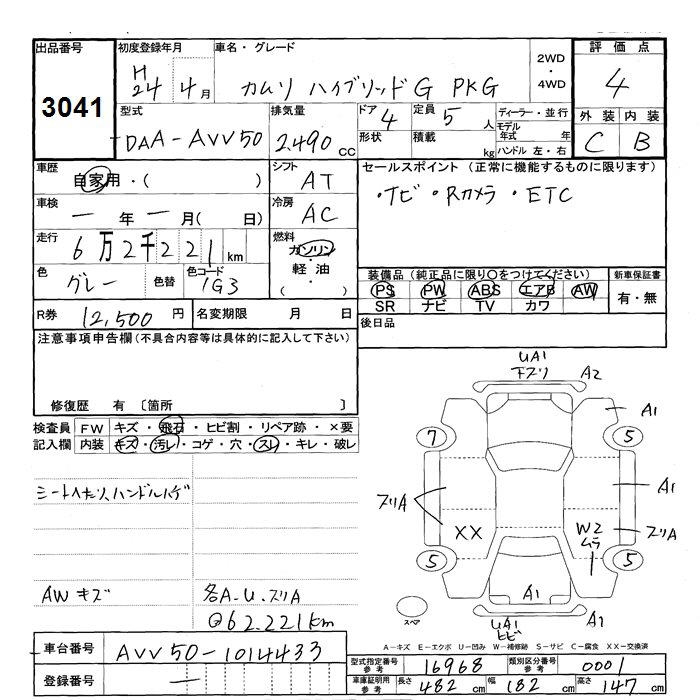 出品番号 初度登録年月 車名・グレード 評価点
3041 H24 4月 カムリ ハイブリッドG PKG 2WD・4WD 4
型式 排気量 ドア 定員 ディーラー・並行 外装 内装
DAA-AVV50 2.490cc 4 5人 モデル年式 年 C B
形状 積載 kg ハンドル 左・右
車歴 自家用・( ) シフト AT セールスポイント (正常に機能するものに限ります)
・ナビ ・Rカメラ ・ETC
車検 ー年ー月( 日) 冷房 AC
走行 6万2千221km 燃料 ガソリン・軽油・( )
色 グレー 色替 色コード 1G3
装備品 (純正品に限り○をつけてください) 新車保証書
PS PW ABS エアB AW 有・無
SR ナビ TV カワ
R券 12,500円 名変期限 月 日 後日品
注意事項申告欄(不具合内容等は具体的に記入して下さい)
修復歴 有 〔箇所 〕
検査員 FW キズ・飛石・ヒビ割・リペア跡・×要
記入欄 内装 キズ・汚レ・コゲ・穴・スレ・キレ・破レ
シートヘタリ、ハンドルハゲ
AWキズ 各A.U.スリA
◎62.221km
UA1
下スリ A2
A1
7 5
スリA A1
XX W2 ムラ スリA
5 5
A1
スペア UA1 ヒビ A1
A-キズ E-エクボ U-凹み W-補修跡 S-サビ C-腐食 XX-交換済
車台番号 AVV50-1014433
登録番号 ー
型式指定番号 参考 16968 類別区分番号 参考 0001
車庫証明用 参考 長さ 482cm 幅 182cm 高さ 147cm